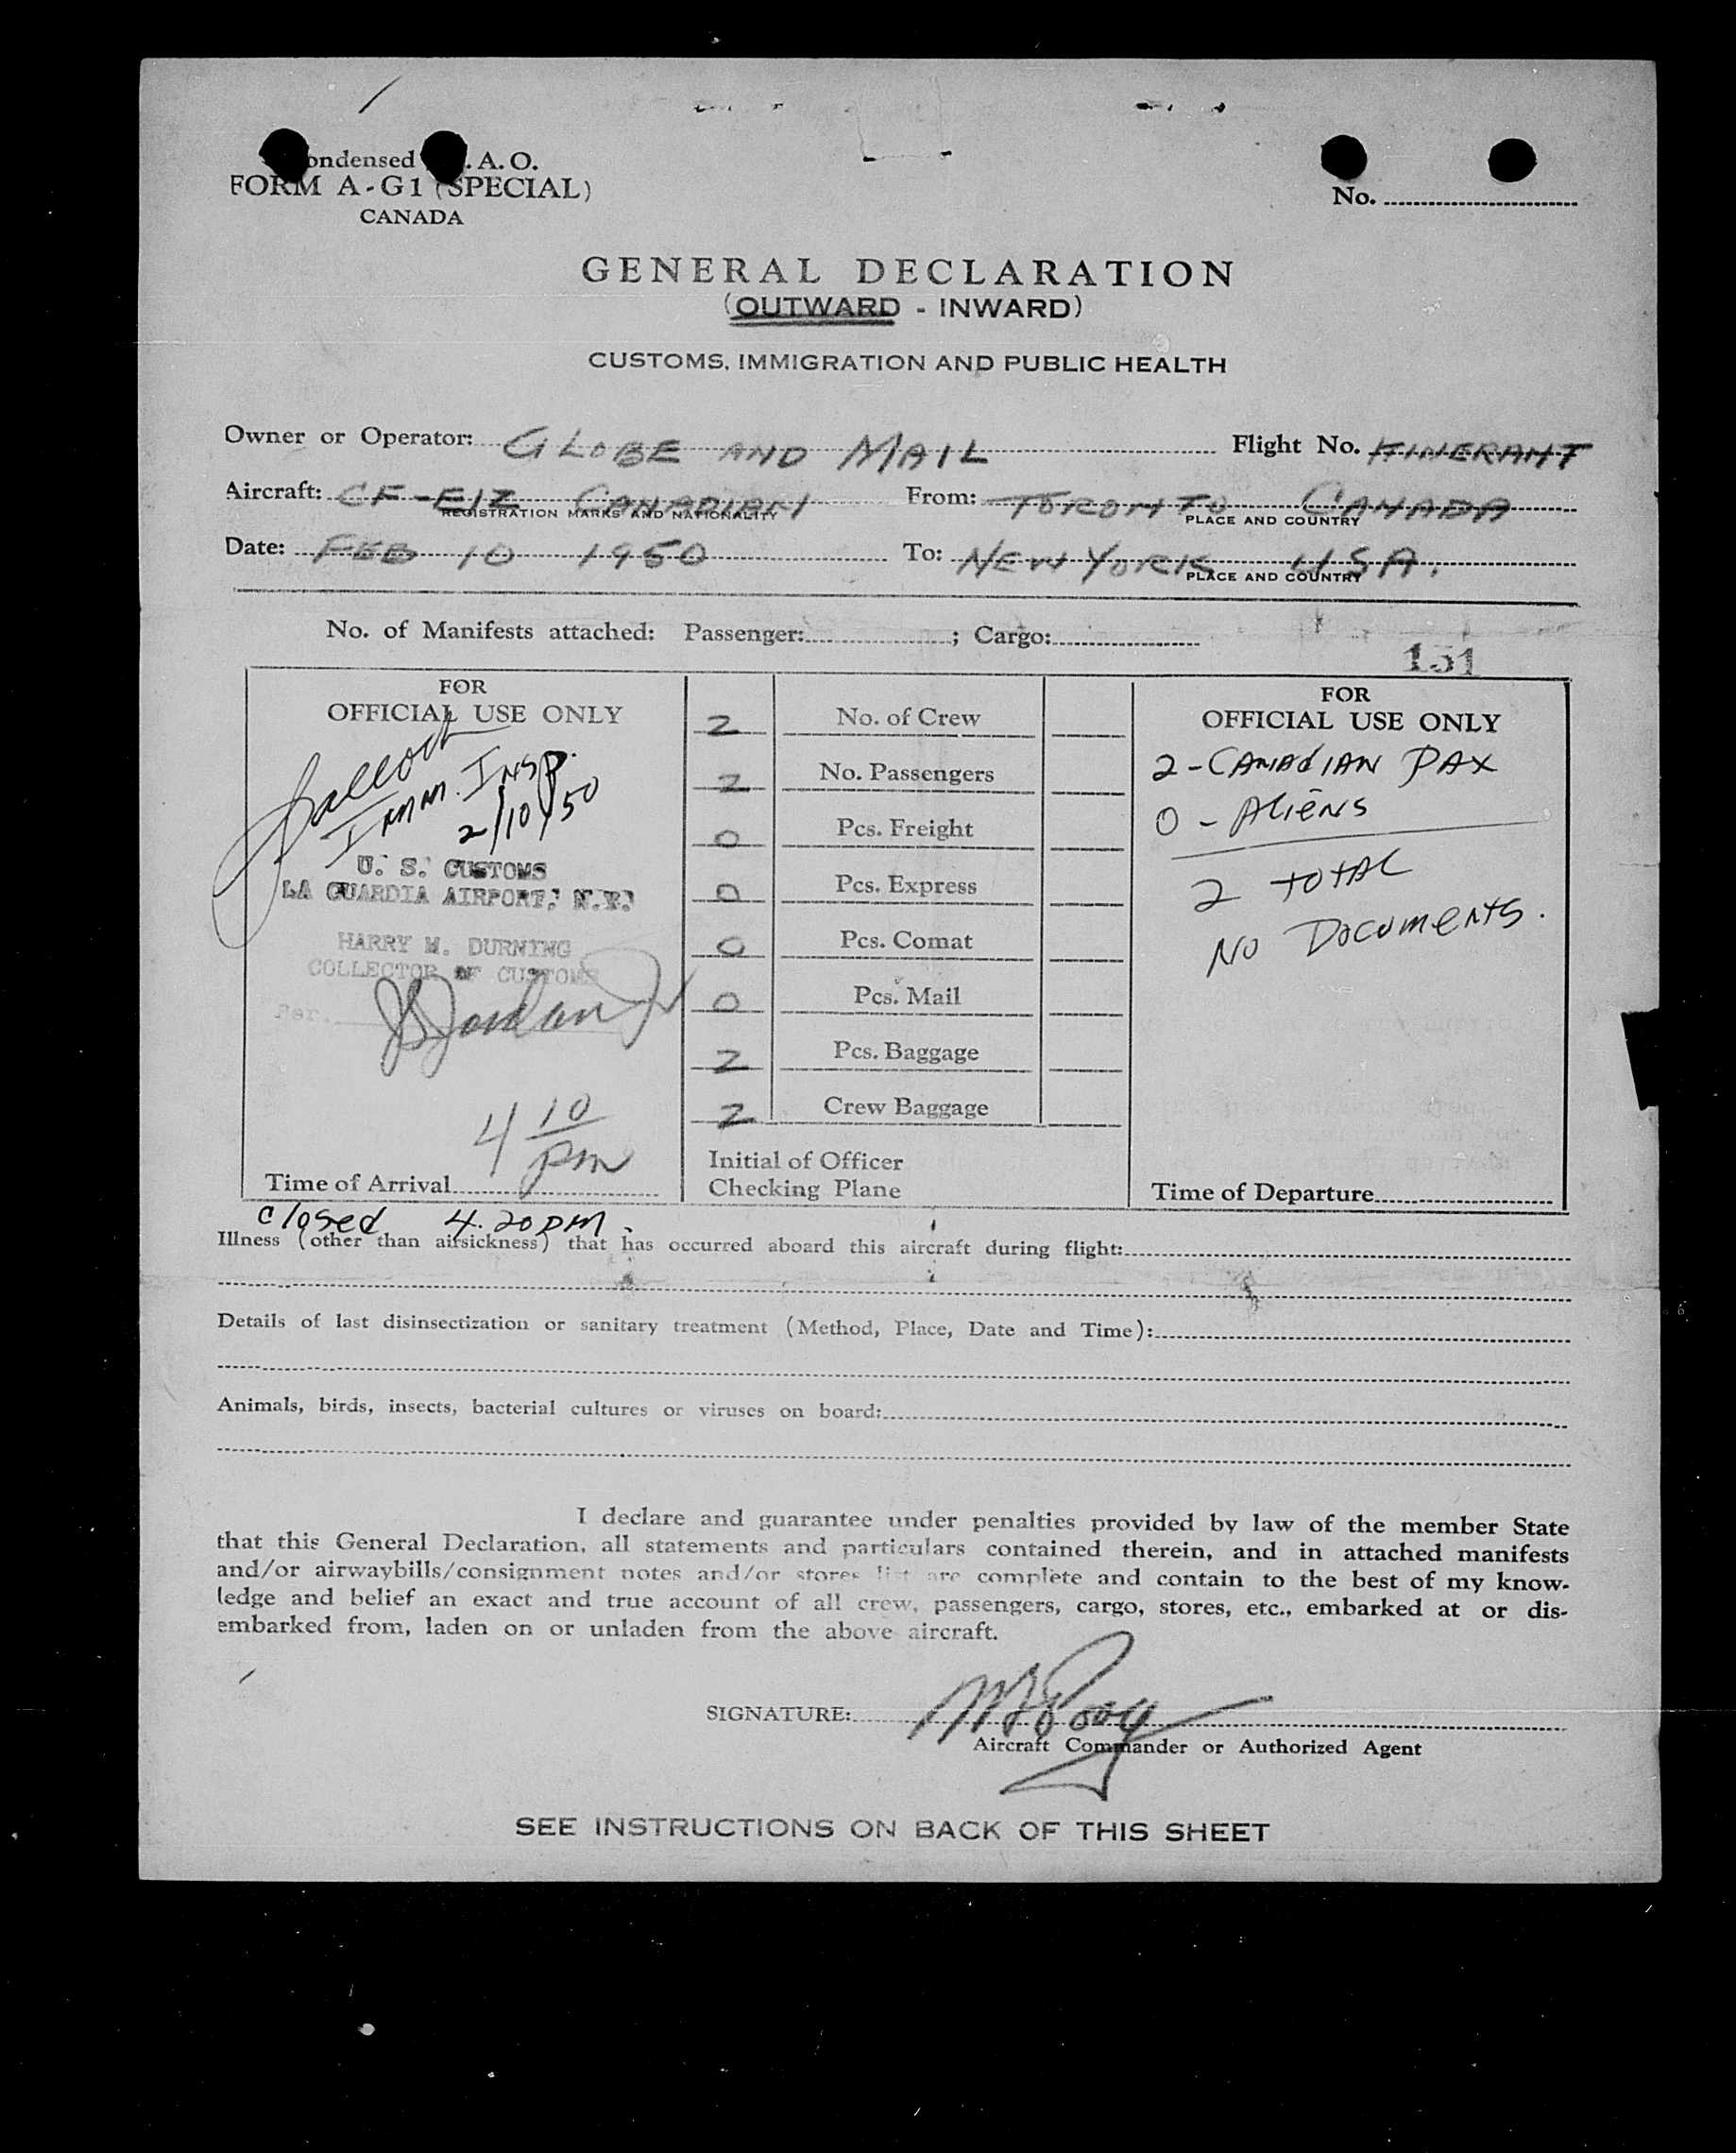 ondensed . A. O.
FORM A-G1 (SPECIAL)
CANADA
No.
GENERAL DECLARATION
(OUTWARD - INWARD)
CUSTOMS, IMMIGRATION AND PUBLIC HEALTH
Owner or Operator: GLOBE AND MAIL Flight No. ITINERANT
Aircraft: CF-EIZ CANADIAN From: TORONTO CANADA
REGISTRATION MARKS AND NATIONALITY PLACE AND COUNTRY
Date: FEB 10 1950 To: NEW YORK USA.
PLACE AND COUNTRY
No. of Manifests attached: Passenger: ; Cargo:
151
FOR
OFFICIAL USE ONLY
Imm. Insp.
2/10/50
U. S. CUSTOMS
LA GUARDIA AIRPORT, N.Y.
HARRY M. DURNING
COLLECTOR OF CUSTOMS
Per.
4 10
pm
Time of Arrival
2 No. of Crew
2 No. Passengers
0 Pcs. Freight
0 Pcs. Express
0 Pcs. Comat
0 Pcs. Mail
2 Pcs. Baggage
2 Crew Baggage
Initial of Officer
Checking Plane
FOR
OFFICIAL USE ONLY
2-CANAdIAN PAX
0 - AliENS
2 TOTAL
NO DOCUMENTS.
Time of Departure
closed 4.20 pm.
Illness (other than airsickness) that has occurred aboard this aircraft during flight:
Details of last disinsectization or sanitary treatment (Method, Place, Date and Time):
Animals, birds, insects, bacterial cultures or viruses on board:
I declare and guarantee under penalties provided by law of the member State
that this General Declaration, all statements and particulars contained therein, and in attached manifests
and/or airwaybills/consignment notes and/or stores list are complete and contain to the best of my know-
ledge and belief an exact and true account of all crew, passengers, cargo, stores, etc., embarked at or dis-
embarked from, laden on or unladen from the above aircraft.
SIGNATURE:
Aircraft Commander or Authorized Agent
SEE INSTRUCTIONS ON BACK OF THIS SHEET